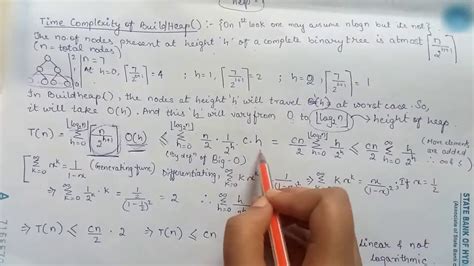 Heap :-
Time Complexity of BuildHeap() :- {On 1st look one may assume nlogn but its not}
The no. of nodes present at height 'h' of a complete binary tree is atmost ⌈n/2^(h+1)⌉
(n = total nodes)
n = 7
At h=0, ⌈7/2^(0+1)⌉ = 4 ; h=1, ⌈7/2^(1+1)⌉ = 2 ; h=2, ⌈7/2^(2+1)⌉ = 1
In Buildheap(), the nodes at height 'h' will travel 'h' at worst case. So,
it will take O(h). And this 'h' will vary from 0 to ⌊log₂n⌋ → height of heap
T(n) = Σ_{h=0}^{⌊log₂n⌋} ⌈n/2^(h+1)⌉ O(h) ≤ Σ_{h=0}^{⌊log₂n⌋} n/2 · 1/2^h · c·h = cn/2 Σ_{h=0}^{⌊log₂n⌋} h/2^h ≤ cn/2 Σ_{h=0}^{∞} h/2^h
(By def of Big-O)
(More elements are added :: ∞
[Σ_{k=0}^{∞} x^k = 1/(1-x) (Generating func) Differentiating, Σ_{k=0}^{∞} k x^k = x/(1-x)²; If x = 1/2
⇒ Σ_{k=0}^{∞} 1/2^k · k = 1/2/(1-1/2)² = 2
⇒ T(n) ≤ cn/2 · 2 ⇒ T(n) ≤ cn
Linear & not
logarithmic.
STATE BANK OF HYD